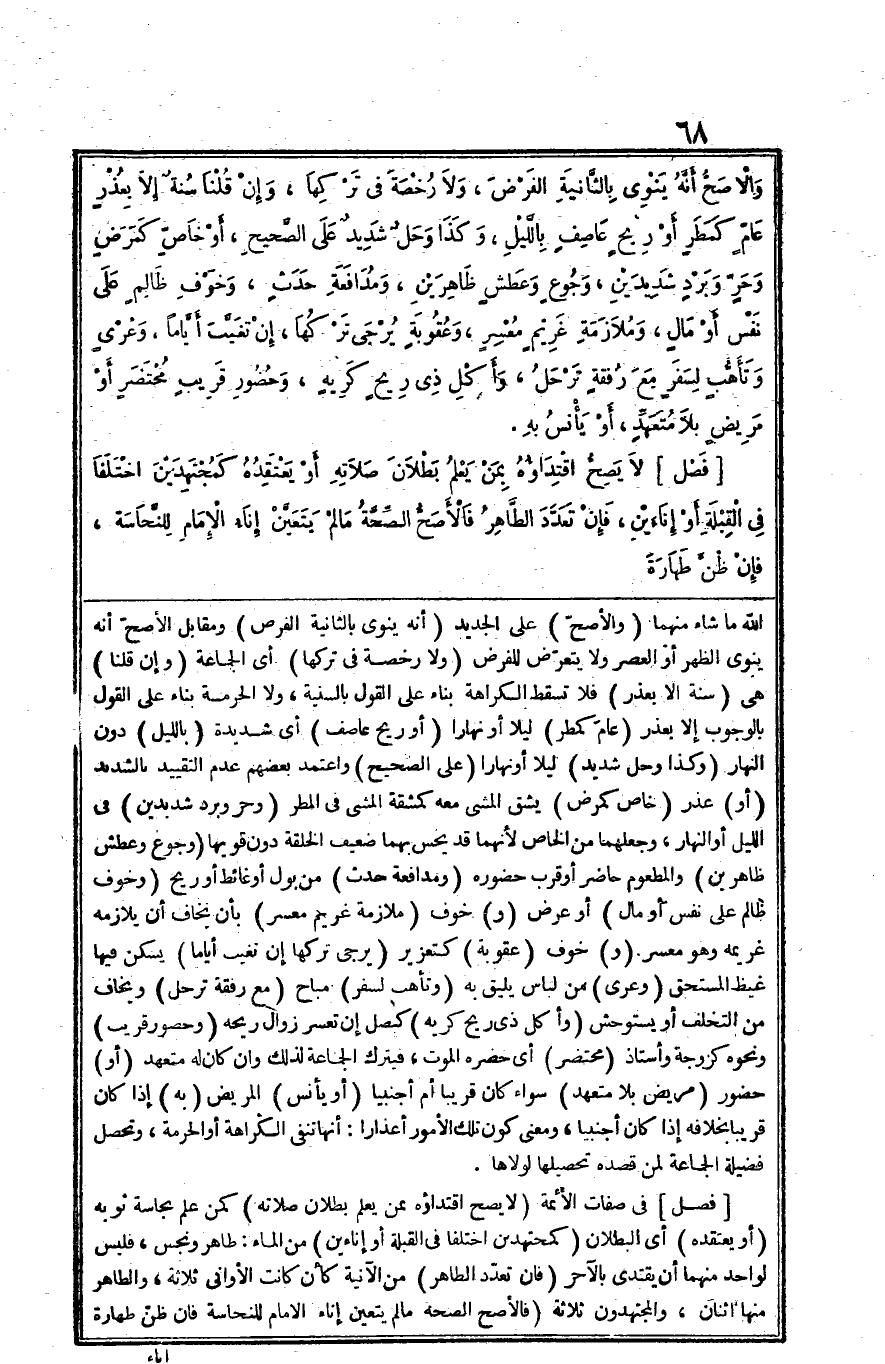 ٦٨
وَالْاصَحُّ أَنَّهُ يَنْوِى بِالثَّانِيَةِ الفَرْضَ ، وَلاَ رُخْصَةَ فى تَرْكِهَا ، وَإِنْ قُلْنَا سُنةٌ إِلاَّ بِعُذْرٍ
عَامٍّ كَمَطَرٍ أَوْ رِيحٍ عَاصِفٍ بِاللَّيْلِ ، وَكَذَا وَحَلٌ شَدِيدٌ عَلَى الصَّحِيحِ ، أَوْ خَاصٍّ كَمَرَضٍ
وَحَرٍّ وَبَرْدٍ شَدِيدَيْنِ ، وَجُوعٍ وَعَطَشٍ ظَاهِرَيْنِ ، وَمُدَافَعَةِ حَدَثٍ ، وَخَوْفِ ظَالِمٍ عَلَى
نَفْسٍ أَوْ مَالٍ ، وَمُلاَزَمَةِ غَرِيْمٍ مُعْسِرٍ ، وَعُقُوبَةٍ يُرْجَى تَرْكُهَا ، إِنْ تَغَيَّبَ أَيَّاماً ، وَعُرْىٍ
وَتَأَهُّبٍ لِسَفَرٍ مَعَ رُفْقةٍ تَرْحَلُ ، وَأَكْلِ ذِى رِيحٍ كَرِيهٍ ، وَحُضُورِ قَرِيبٍ مُحْتَضَرٍ أَوْ
مَرِيضٍ بِلاَ مُتَعَهِّدٍ ، أَوْ يَأْنَسُ بِهِ .
[ فَصْل ] لاَ يَصِحُّ اقْتِدَاؤُهُ بِمَنْ يَعْلَمُ بُطْلاَنَ صَلاَتِهِ أَوْ يَعْتَقِدُهُ كَمُجْتَهِدَيْنِ اخْتَلَفَا
فِى الْقِبْلَةِ أَوْ إِنَاءَيْنِ ، فَإِنْ تَعَدَّدَ الطَّاهِرُ فَالْأَصَحُّ الصِّحَّةُ مَالَمْ يَتَعَيَّنْ إِنَاءُ الْإِمَامِ لِلنَّجَاسَة ،
فَإِنْ ظَنَّ طَهَارَةَ
الله ما شاء منهما ( والأصحّ ) على الجديد ( أنه ينوى بالثانية الفرض ) ومقابل الأصحّ أنه
ينوى الظهر أو العصر ولا يتعرّض للفرض ( ولا رخصة فى تركها ) أى الجماعة ( و إن قلنا )
هى ( سنة الا بعذر ) فلا تسقط الكراهة بناء على القول بالسنية ، ولا الحرمة بناء على القول
بالوجوب إلا بعذر ( عامّ كمطر ) ليلا أو نهارا ( أو ريح عاصف ) أى شديدة ( بالليل ) دون
النهار ( وكذا وحل شديد ) ليلا أو نهارا ( على الصحيح ) واعتمد بعضهم عدم التقييد بالشديد
( أو ) عذر ( خاص كمرض ) يشق المشى معه كمشقة المشى فى المطر ( وحر وبرد شديدين ) فى
الليل أو النهار ، وجعلهما من الخاص لأنهما قد يحس بهما ضعيف الخلقة دون قويها ( وجوع وعطش
ظاهرين ) والمطعوم حاضر أو قرب حضوره ( ومدافعة حدث ) من بول أو غائط أو ريح ( وخوف
ظالم على نفس أو مال ) أو عرض ( و ) خوف ( ملازمة غريم معسر ) بأن يخاف أن يلازمه
غريمه وهو معسر . ( و ) خوف ( عقوبة ) كتعزير ( يرجى تركها إن تغيب أياما ) يسكن فيها
غيظ المستحق ( وعرى ) من لباس يليق به ( وتأهب لسفر ) مباح ( مع رفقة ترحل ) ويخاف
من التخلف أو يستوحش ( وأكل ذى ريح كريه ) كبصل إن تعسر زوال ريحه ( وحضور قريب )
ونحوه كزوجة وأستاذ ( محتضر ) أى حضره الموت ، فيترك الجماعة لذلك وان كان له متعهد ( أو )
حضور ( مريض بلا متعهد ) سواء كان قريبا أم أجنبيا ( أو يأنس ) المريض ( به ) إذا كان
قريبا بخلافه إذا كان أجنبيا ، ومعنى كون تلك الأمور أعذارا : أنها تنفى الكراهة أو الحرمة ، وتحصل
فضيلة الجماعة لمن قصده تحصيلها لولاها .
[ فصل ] فى صفات الأئمة ( لا يصح اقتداؤه بمن يعلم بطلان صلاته ) كمن علم بنجاسة ثوبه
( أو يعتقده ) أى البطلان ( كمجتهدين اختلفا فى القبلة أو إناءين ) من الماء : طاهر ونجس ، فليس
لواحد منهما أن يقتدى بالآخر ( فان تعدّد الطاهر ) من الآنية كأن كانت الأوانى ثلاثة ، والطاهر
منها اثنان ، والمجتهدون ثلاثة ( فالأصح الصحة مالم يتعين إناء الامام للنجاسة فان ظنّ طهارة
اناء